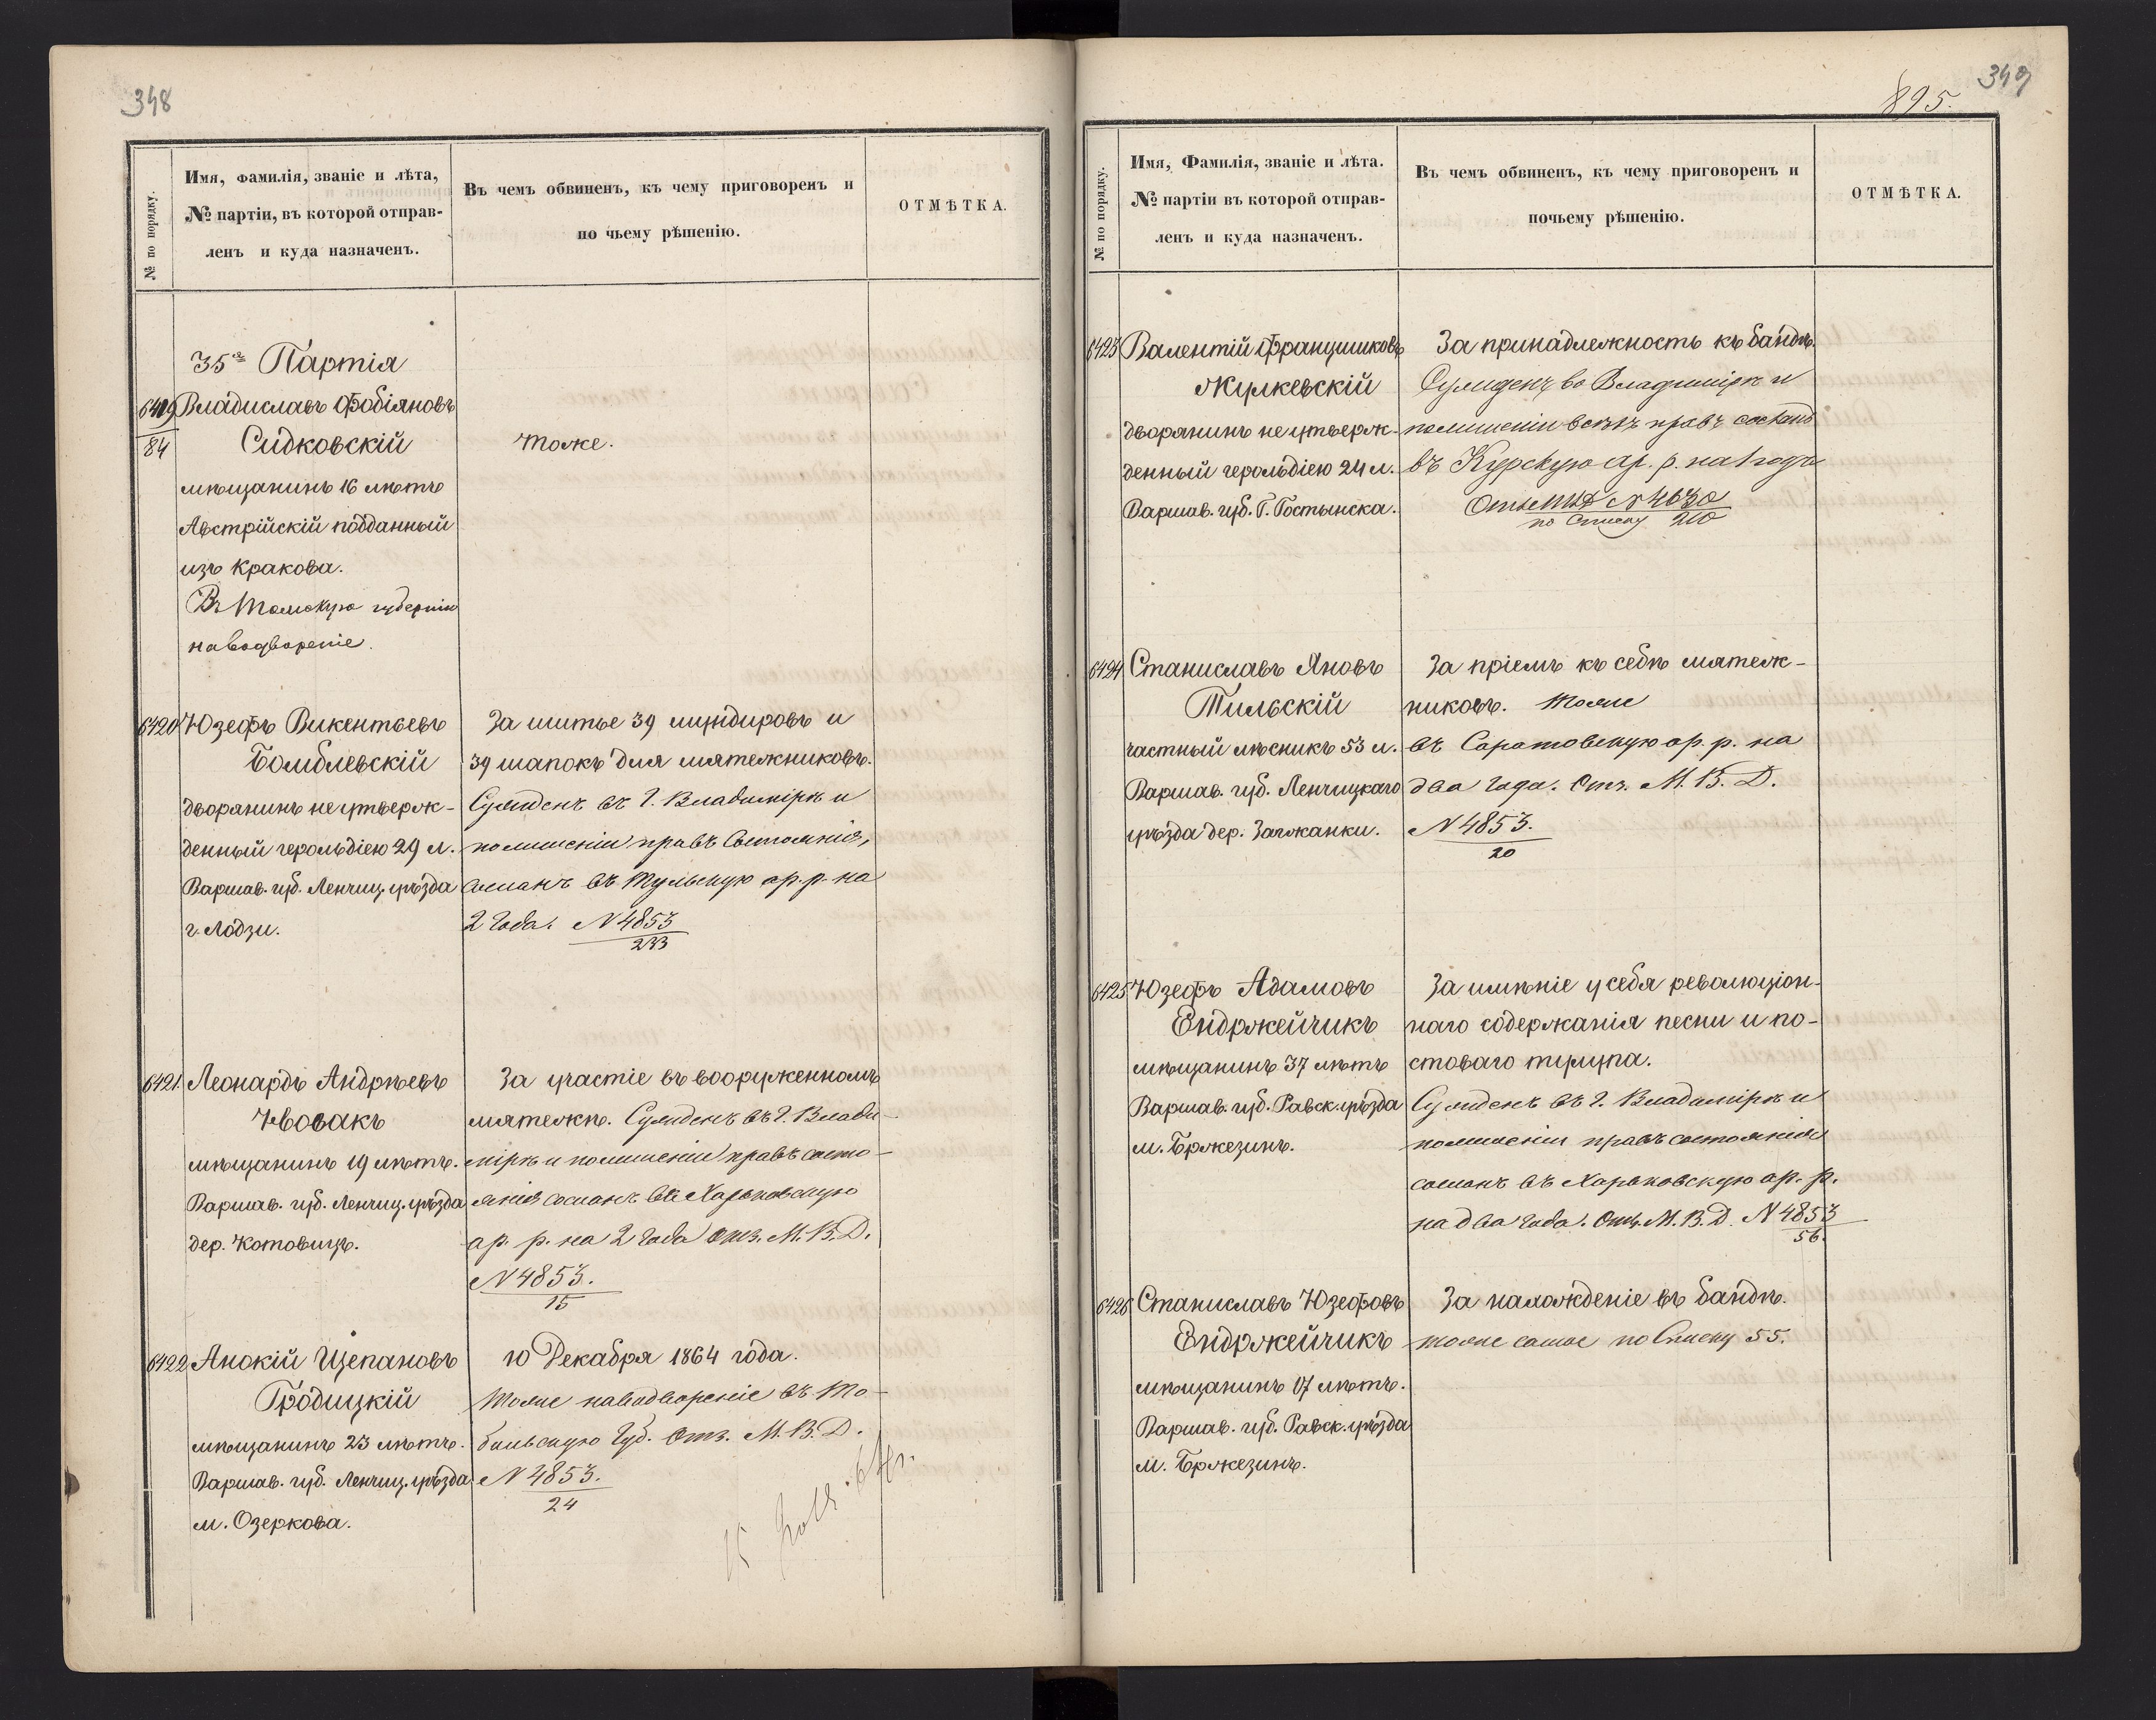 348
№ по порядку.
Имя, фамилія, званіе и лѣта,
№ партіи, въ которой отправ-
ленъ и куда назначенъ.
Въ чемъ обвиненъ, къ чему приговоренъ и
по чьему рѣшенію.
ОТМѢТКА.
35я Партія
6419
84
Владиславъ Фобіяновъ
Сидковскій
мѣщанинъ 16 лѣтъ
Австрійскій подданный
изъ Кракова.
Въ Томскую губернію
на водвореніе.
тоже.
6420
Юзефъ Викентьевъ
Бомблевскій
дворянинъ не утверж-
денный герольдіею 29 л.
Варшав. губ. Ленчиц. уѣзда
г. Лодзи.
За шитье 39 мундировъ и
39 шапокъ для мятежниковъ.
Сужденъ въ г. Владимірѣ и
по лишеніи правъ состоянія,
сосланъ въ Тульскую ар. р. на
2 года. N 4853
233
6421.
Леонардъ Андрѣевъ
Новакъ
мѣщанинъ 19 лѣтъ.
Варшав. губ. Ленчиц. уѣзда
дер. Котовицъ.
За участіе въ вооруженномъ
мятежѣ. Сужденъ въ г. Влади-
мірѣ и по лишеніи правъ состо-
янія сосланъ въ Харьковскую
ар. р. на 2 года отз. М. В. Д.
N 4853.
15
6422
Анокій Щепановъ
Гродицкій
мѣщанинъ 23 лѣтъ.
Варшав. губ. Ленчиц. уѣзда
м. Озеркова.
10 Декабря 1864 года.
Тоже на водвореніе въ То-
больскую Губ. Отз. М. В. Д.
N 4853.
24
349
895.
№ по порядку.
Имя, Фамилія, званіе и лѣта.
№ партіи въ которой отправ-
ленъ и куда назначенъ.
Въ чемъ обвиненъ, къ чему приговоренъ и
почьему рѣшенію.
ОТМѢТКА.
6423
Валентій Францишковъ
Жулкевскій
дворянинъ не утверж-
денный герольдіею 24 л.
Варшав. губ. Г. Гостынска.
За принадлежность къ бандѣ.
Сужденъ во Владимірѣ и
по лишеніи всѣхъ правъ состоян
въ Курскую ар. р. на 1 годъ
N 4630
по Списку 210
6424
Станиславъ Яновъ
Тильскій
частный лѣсникъ 53 л.
Варшав. губ. Ленчицкаго
уѣзда дер. Загжанки.
За пріемъ къ себѣ мятеж-
никовъ. Тоже
въ Саратовскую ар. р. на
два года. Отз. М. В. Д.
N 4853.
20
6425
Юзефъ Адамовъ
Ендржейчикъ
мѣщанинъ 37 лѣтъ
Варшав. губ. Равск. уѣзда
м. Бржезинъ.
За имѣніе у себя революціон-
наго содержанія песни и по-
стоваго тулупа.
Сужденъ въ г. Владимірѣ и
по лишеніи правъ состоянія
сосланъ въ Харьковскую ар. р.
на два года. Отз. М. В. Д. N 4853
56.
6426
Станиславъ Юзефовъ
Ендржейчикъ
мѣщанинъ 17 лѣтъ.
Варшав. губ. Равск. уѣзда
м. Бржезинъ.
За нахожденіе въ бандѣ.
тоже самое по Списку 55.